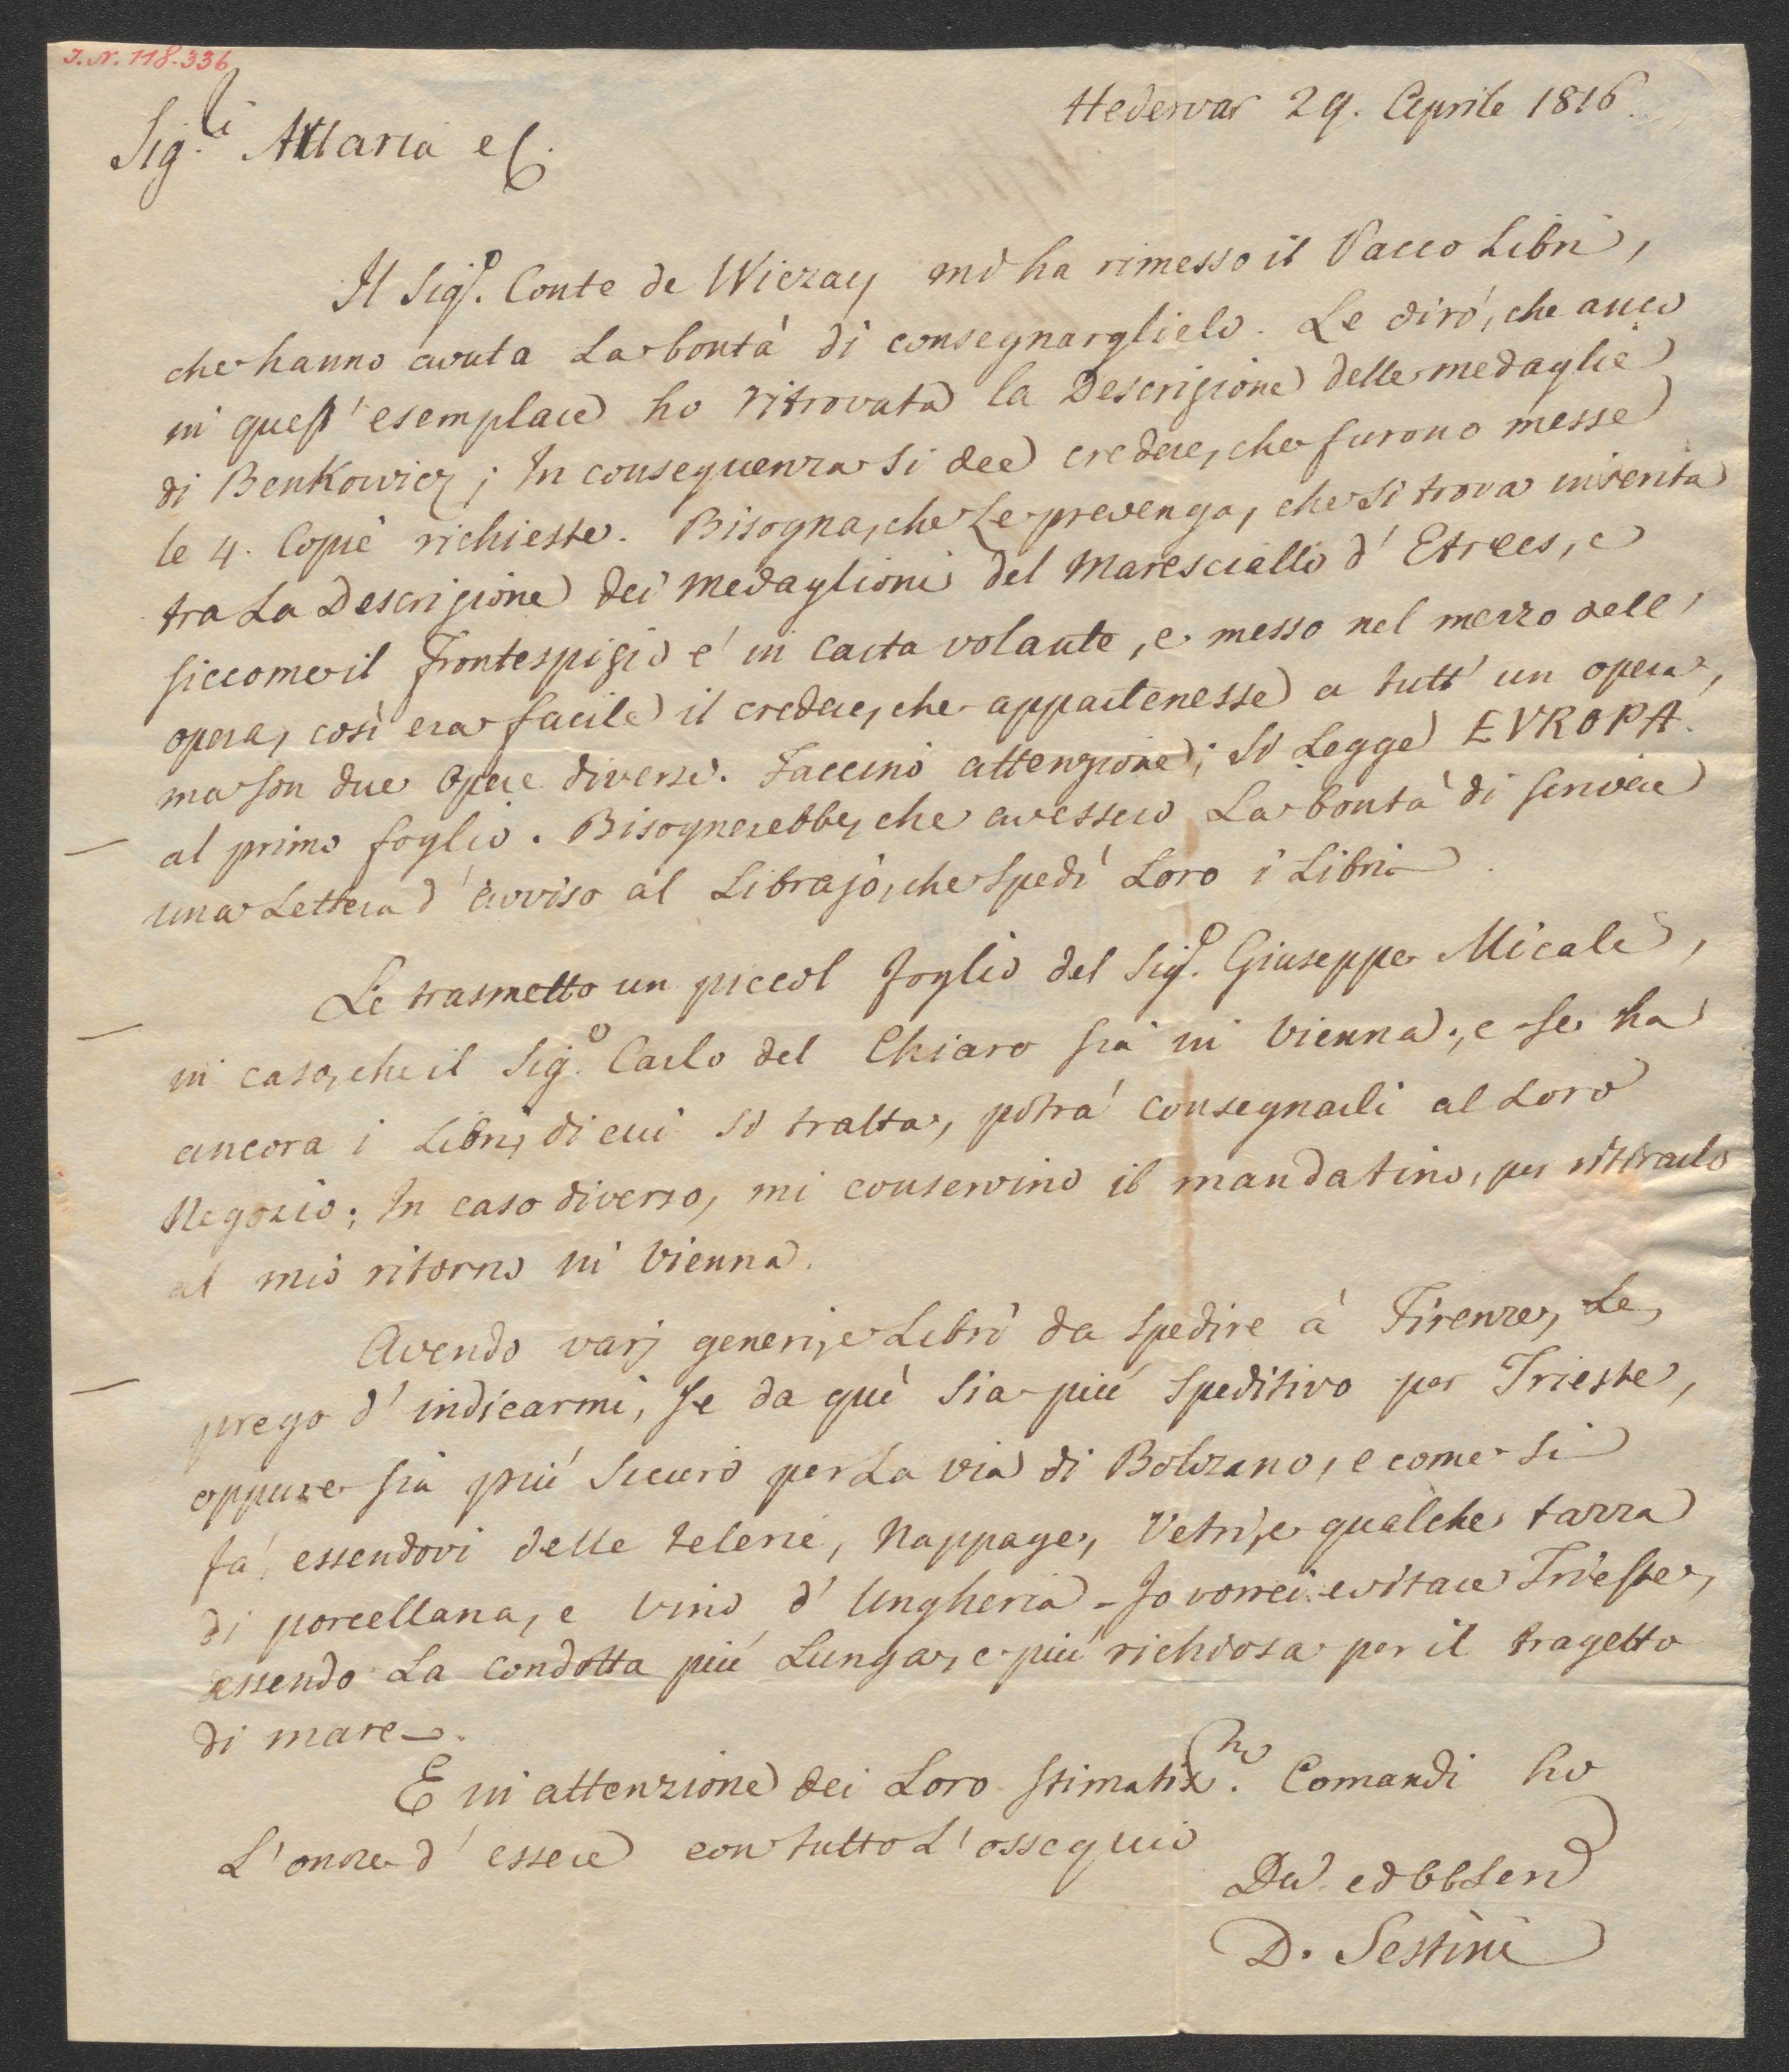 I.N. 118.336
Hedervar 29. Aprile 1816.
Sig.li Attaria e C.
Il Sig.o Conte de Wiczay mi ha rimesso il Pacco Libri,
che hanno avuta La bontà di consegnarglielo. Le dirò, che anco
in quest' esemplare ho ritrovata la Descrizione delle medaglie
di Benkowicz; In conseguenza si dee credere, che furono messe
le 4. Copie richieste. Bisogna, che Le prevenga, che si trova inserita
tra La Descrizione dei Medaglioni del Maresciallo d' Etrees, e
siccome il Frontespizio é in carta volante, e messo nel mezzo dell'
opera, così era facile il credere, che appartenesse a tutt' un opera,
ma son due Opere diverse. Faccino attenzione; Si Legge EVROPA.
al primo foglio. Bisognerebbe, che avessero La bontà di scrivere
una Lettera d' avviso al Librajo, che spedì Loro i Libri.
Le trasmetto un piccol foglio del Sig.o Giuseppe Micali,
in caso, che il Sig.o Carlo del Chiaro sia in Vienna; e se ha
ancora i Libri, di cui si tratta, potrà consegnarli al Loro
Negozio; In caso diverso, mi conservino il mandatino, per ritirarlo
al mio ritorno in Vienna.
Avendo varj generi, e Libri da spedire à Firenze, Le
prego d' indicarmi, se da quì sia più speditivo per Trieste,
oppure sia più sicuro per La via di Bolzano, e come si
fa, essendovi delle telerie, Nappage, Vetri, e qualche tazza
di porcellana, e vino d' Ungheria - Io vorrei evitare Trieste,
essendo La condotta più Lunga, e più richiosa per il tragetto
di mare.
E in attenzione dei Loro stimatis.mi Comandi ho
L'onore d' essere con tutto L' ossequio
D. Sestini